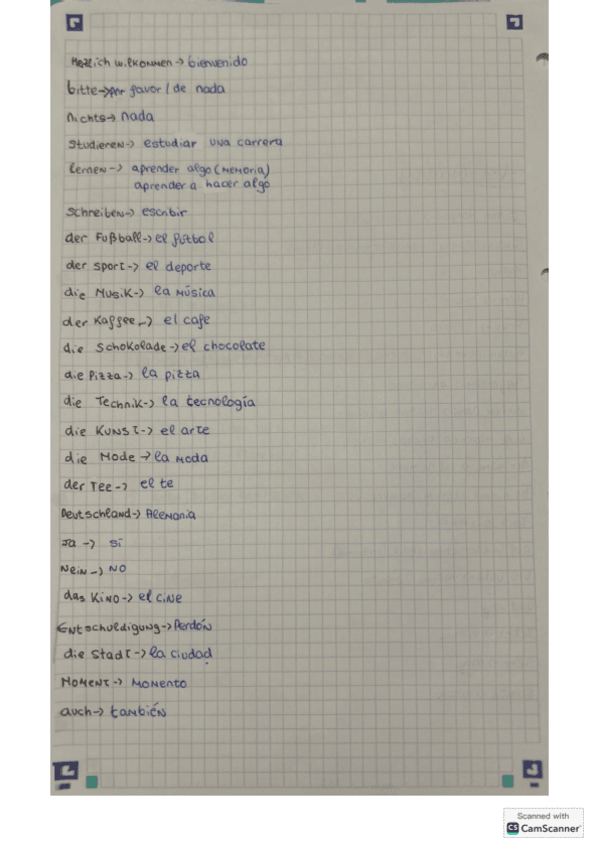 Herzlich wilkommen → bienvenido
bitte → por favor / de nada
nichts → nada
studieren → estudiar una carrera
lernen → aprender algo (memoria)
aprender a hacer algo
schreiben → escribir
der Fußball → el fútbol
der sport → el deporte
die Musik → la música
der Kaffee → el cafe
die Schokolade → el chocolate
die Pizza → la pizza
die Technik → la tecnología
die Kunst → el arte
die Mode → la moda
der Tee → el te
Deutschland → Alemania
Ja → sí
Nein → No
das Kino → el cine
Entschuldigung → Perdón
die Stadt → la ciudad
Moment → Momento
auch → también
Scanned with
CS CamScanner